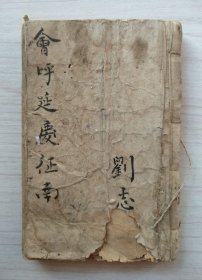 會呼延慶征南
劉志